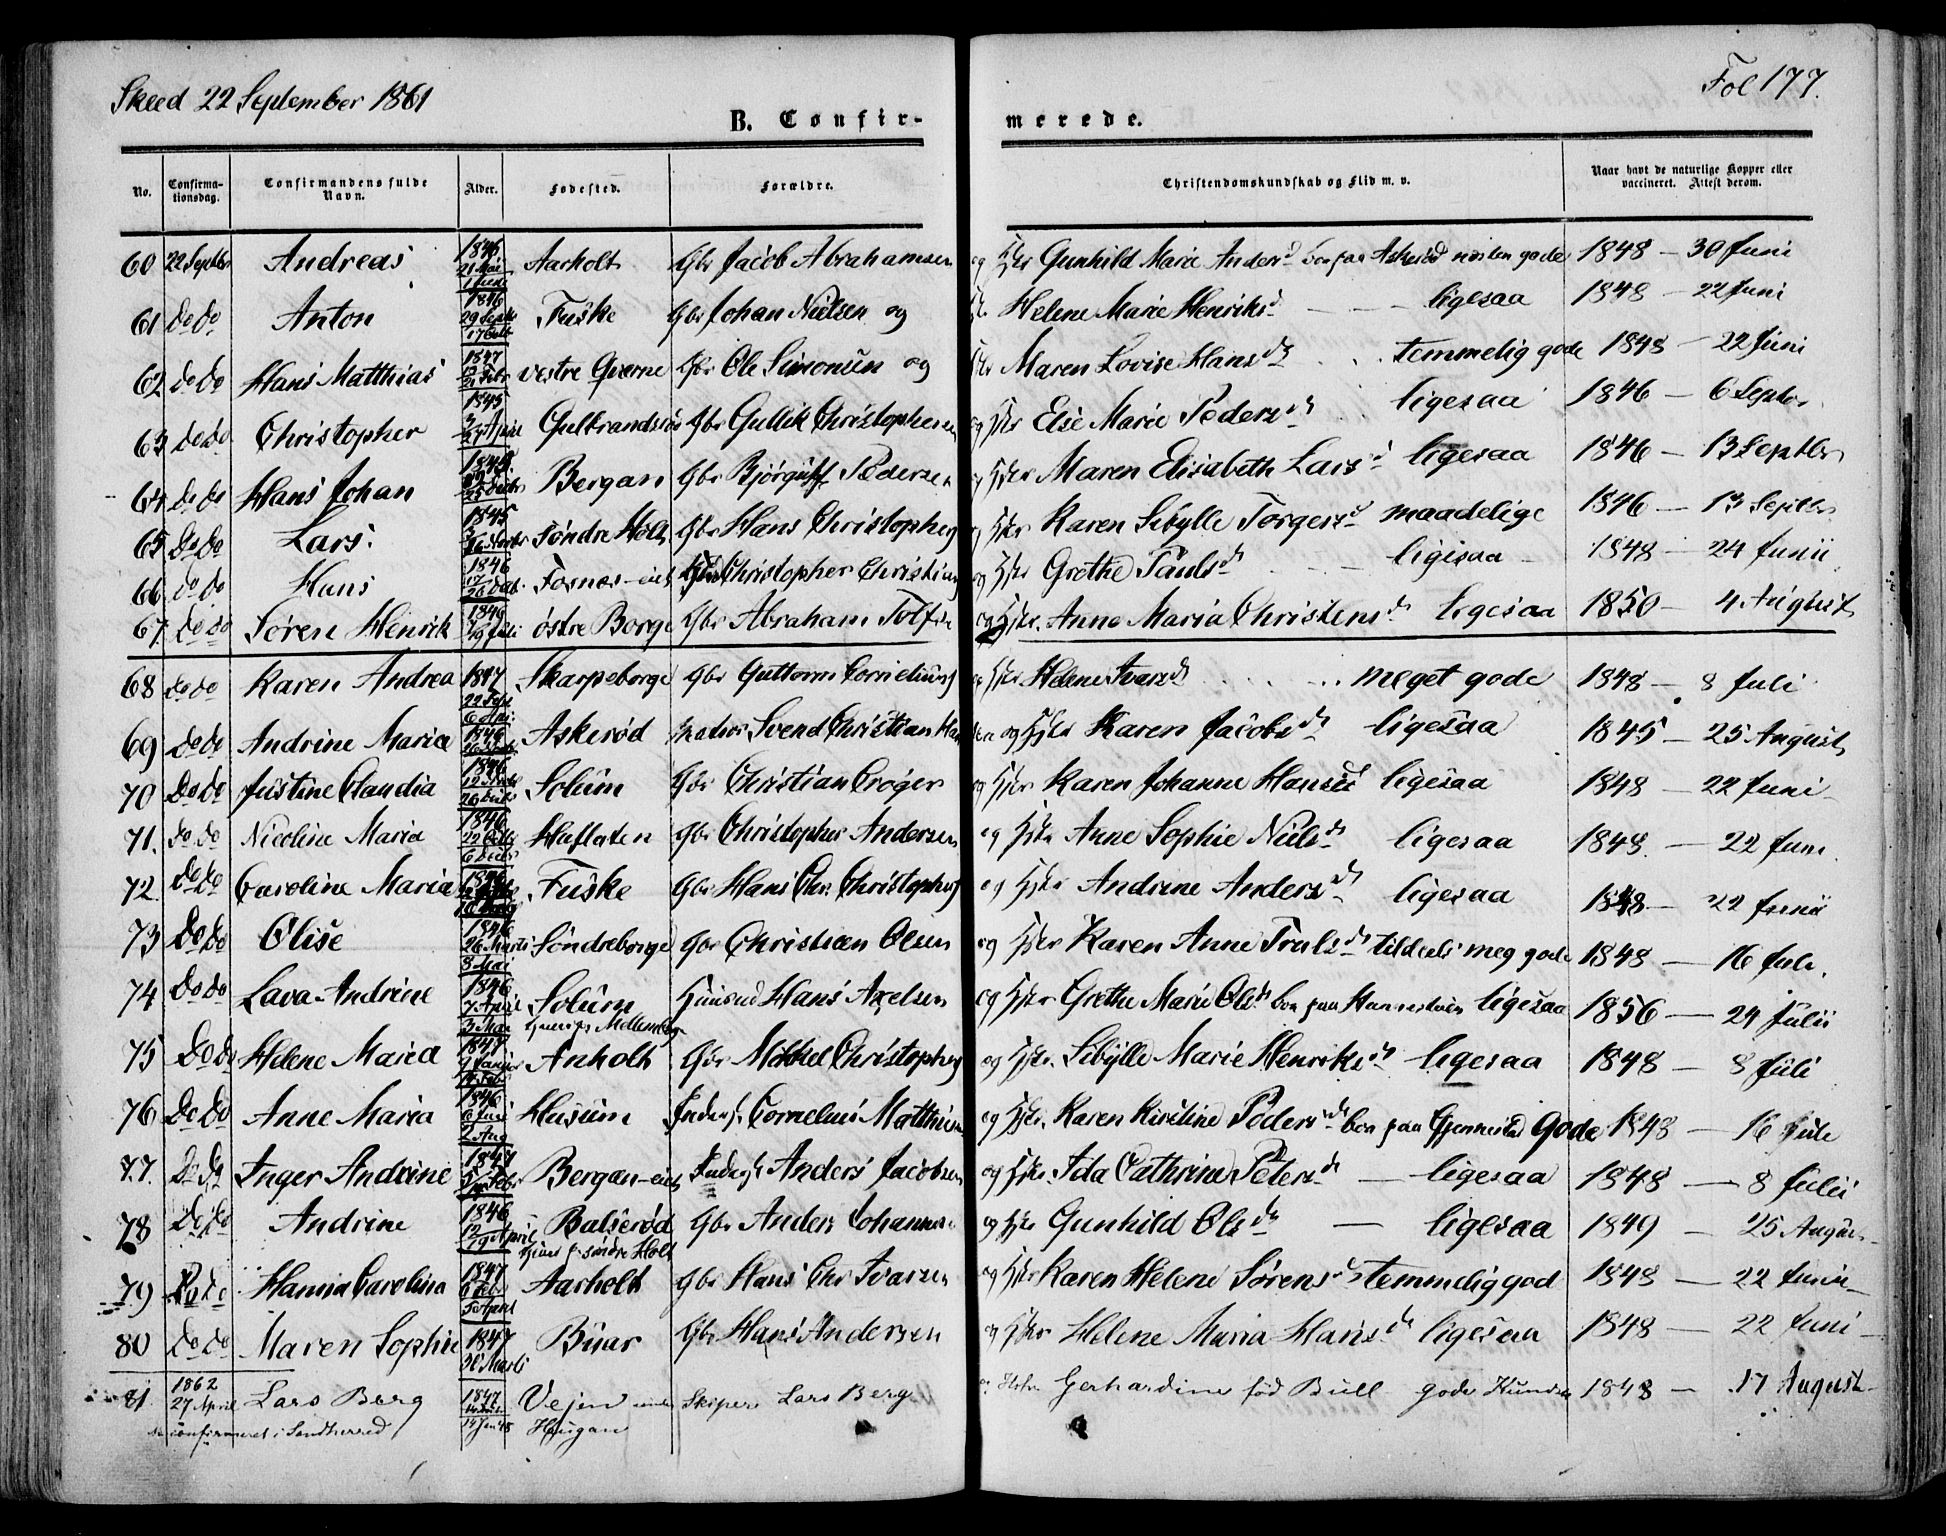 Skeed 22 September 1861
Fol 177.
B. Confir-
merede.
No. Confirma-tionsdag. Confirmandens fulde Navn. Alder. Fødested. Forældre. Christendomskundskab og Flid m. v. Naar havt de naturlige Kopper eller vaccineret. Attest derom.
60 22 Septbr Andreas 1846 21 Mai Aarholt Gbr Jacob Abrahamsen og Hstr Gunhild Marie Andersd boe paa Askerød næsten gode 1848 — 30 Juni
61 do do Anton 1846 29 Septr Fuske Gbr Johan Nielsen og Helene Marie Henriksd — ligesaa 1848 — 22 Juni
62 do do Hans Matthias 1847 21 Febr vestre Gverne Gbr Ole Simonsen og Hstr Maren Lovise Hansdtr temmelig gode 1848 — 22 Juni
63 do do Christopher 1845 April Gulbrandsrø Gbr Gullik Christophersen og Hstr Else Marie Pedersdtr ligesaa 1846 — 6 Septbr
64 do do Hans Johan Bergan Gbr Pedersen og Hstr Maren Elisabeth Larsd ligesaa 1846 — 13 Septbr
65 do do Lars 1845 Søndre Holt Gbr Hans Christophers og Hstr Karen Sibylle Torgersd maadelige 1846 — 13 Septbr
66 do do Hans 1846 Fosnæs-eie Christopher Christians og Hstr Grethe Paulsd — ligesaa — 1848 — 24 Junii
67 do do Søren Henrik 1846 19 Juli østre Borge Gbr Abraham og Hstr. Anne Maria Christensd ligesaa 1850 — 4 August
68 do do Karen Andrea 1847 Skarpeborge Gbr Guttorm Corneliuss og Hstr Helene Ivarsd ... meget gode 1848 — 8 Juli
69 do do Andrine Maria 1846 Askerød Svend Christian og Hstr Karen Jacobsd ligesaa 1845 — 25 August
70 do do Justine Claudia 1846 Solum Gbr Christian Crøger og Hstr Karen Johanne Hansd ligesaa 1848 — 22 Juni
71. do do Nicoline Maria 1846 Haflaten Gbr Christopher Andersen og Hstr Anne Sophie Nielsd ligesaa 1848. — 22 Juni
72 do do Caroline Maria 1846 Fuske Gbr Hans Chr. Christophers og Hstr Andrine Andersd ligesaa 1848 — 22 Junii
73 do do Olise 1846 26 Marts 8 Mai Søndreborge Gbr Christian Olsen og Hstr Karen Anne Trulsd tildeels meg gode 1848 — 16 Juli.
74 do do Lava Andrine 1846 7 April 3 Mai Solum Huusmd Hans Axelsen og Hstr Grethe Marie Olsd boe paa ligesaa 1856 — 24 Julii
75 do do Helene Maria 1847 9 Januar 14 Febr Anholt Gbr Mikkel Christophers og Hstr. Sibylle Marie Henriksd ligesaa 1848 — 8 Juli
76 do do Anne Maria 1846 6 Juni 2 Aug Husum Inderst Cornelius Matthisen og Hstr. Karen Kirstine Pedersd boe paa Gjennestad Gode 1848 — 16 Juli
77. do do Inger Andrine 1847 Febr Bergan-eie Inderst Anders Jacobsen og Hstr. Ida Cathrine Petersd — ligesaa 1848 — 8 Julii
78 do do Andrine 1846 12 19 April Balserød søndre Holt Gbr Anders Johannes og Hstr Gunhild Olsd — ligesaa 1849 — 25 August
79 do do Hanna Carolina 1847 6 Febr 5 April Aarholt Gbr Hans Chr Ivarsen og Hstr Karen Helene Sørensd temmelig god 1848 — 22 Junii
80 do do Maren Sophie 1847 30 Marts Buar Gbr Hans Andersen og Hstr Helene Maria Hansd ligesaa 1848 — 22 Juni
81. 1862 27 April Lars Berg 1847 Vejen under Haugan Skiper Lars Berg og Gerhardine fød Bull gode 1848 — 17 August
confirmeret i Sandherred